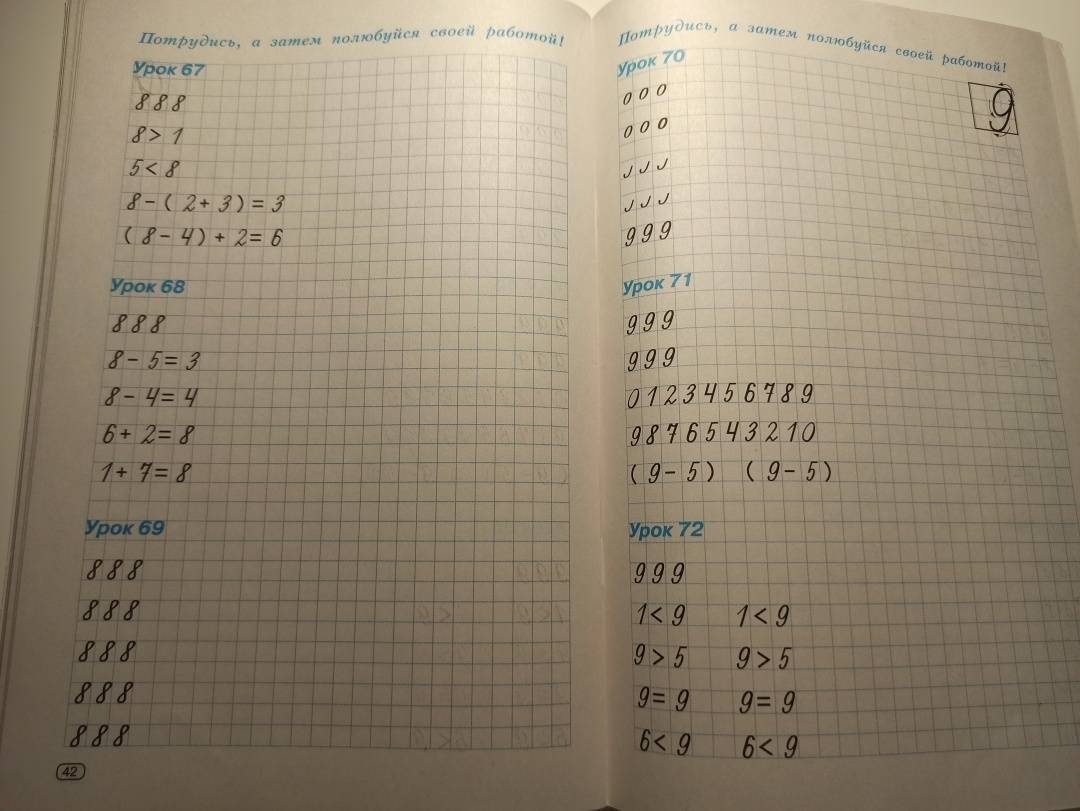 Потрудись, а затем полюбуйся своей работой!
Урок 67
8 8 8
8 > 1
5 < 8
8 - ( 2 + 3 ) = 3
( 8 - 4 ) + 2 = 6
Урок 68
8 8 8
8 - 5 = 3
8 - 4 = 4
6 + 2 = 8
1 + 7 = 8
Урок 69
8 8 8
8 8 8
8 8 8
8 8 8
8 8 8
42
Потрудись, а затем полюбуйся своей работой!
Урок 70
9
0 0 0
0 0 0
9 9 9
Урок 71
9 9 9
9 9 9
0 1 2 3 4 5 6 7 8 9
9 8 7 6 5 4 3 2 1 0
( 9 - 5 ) ( 9 - 5 )
Урок 72
9 9 9
1 < 9 1 < 9
9 > 5 9 > 5
9 = 9 9 = 9
6 < 9 6 < 9